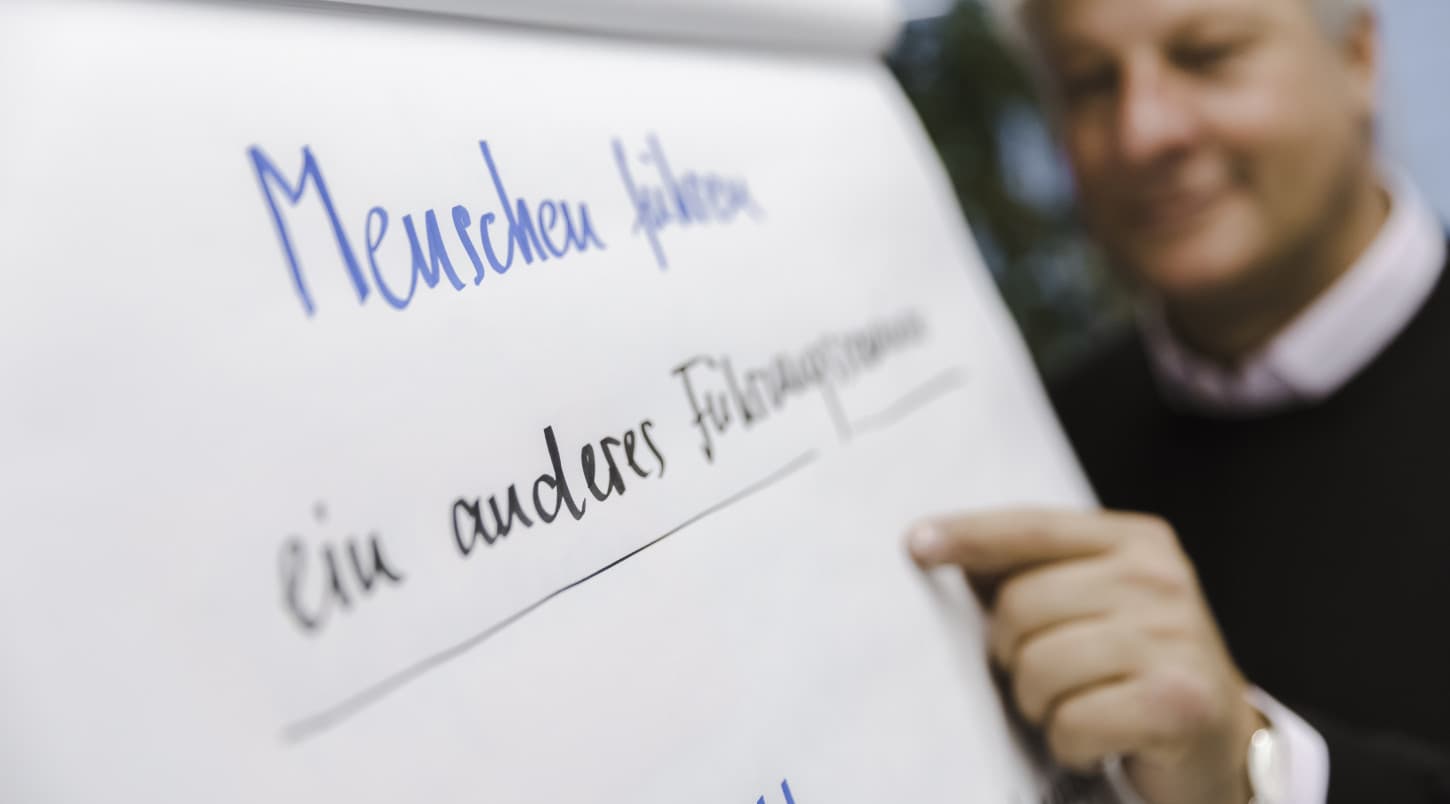 Menschen führen
ein anderes